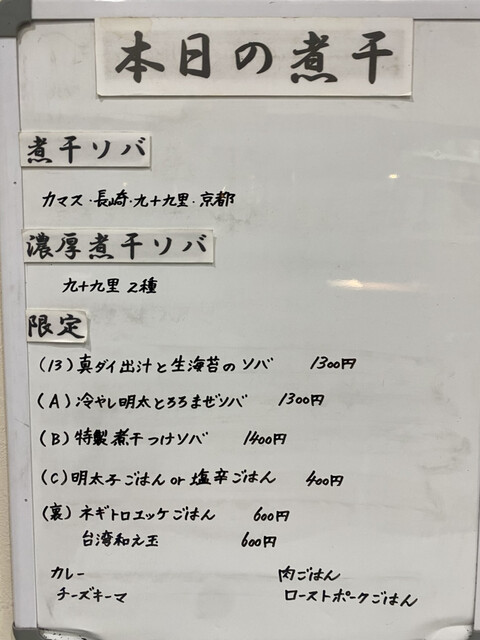 本日の煮干
煮干ソバ
カマス・長崎・九十九里・京都
濃厚煮干ソバ
九十九里 2種
限定
(13) 真ダイ出汁と生海苔のソバ 1300円
(A) 冷やし明太とろろまぜソバ 1300円
(B) 特製煮干つけソバ 1400円
(C) 明太子ごはん or 塩辛ごはん 400円
(裏) ネギトロエッケごはん 600円
台湾和え玉 600円
カレー 肉ごはん
チーズキーマ ローストポークごはん